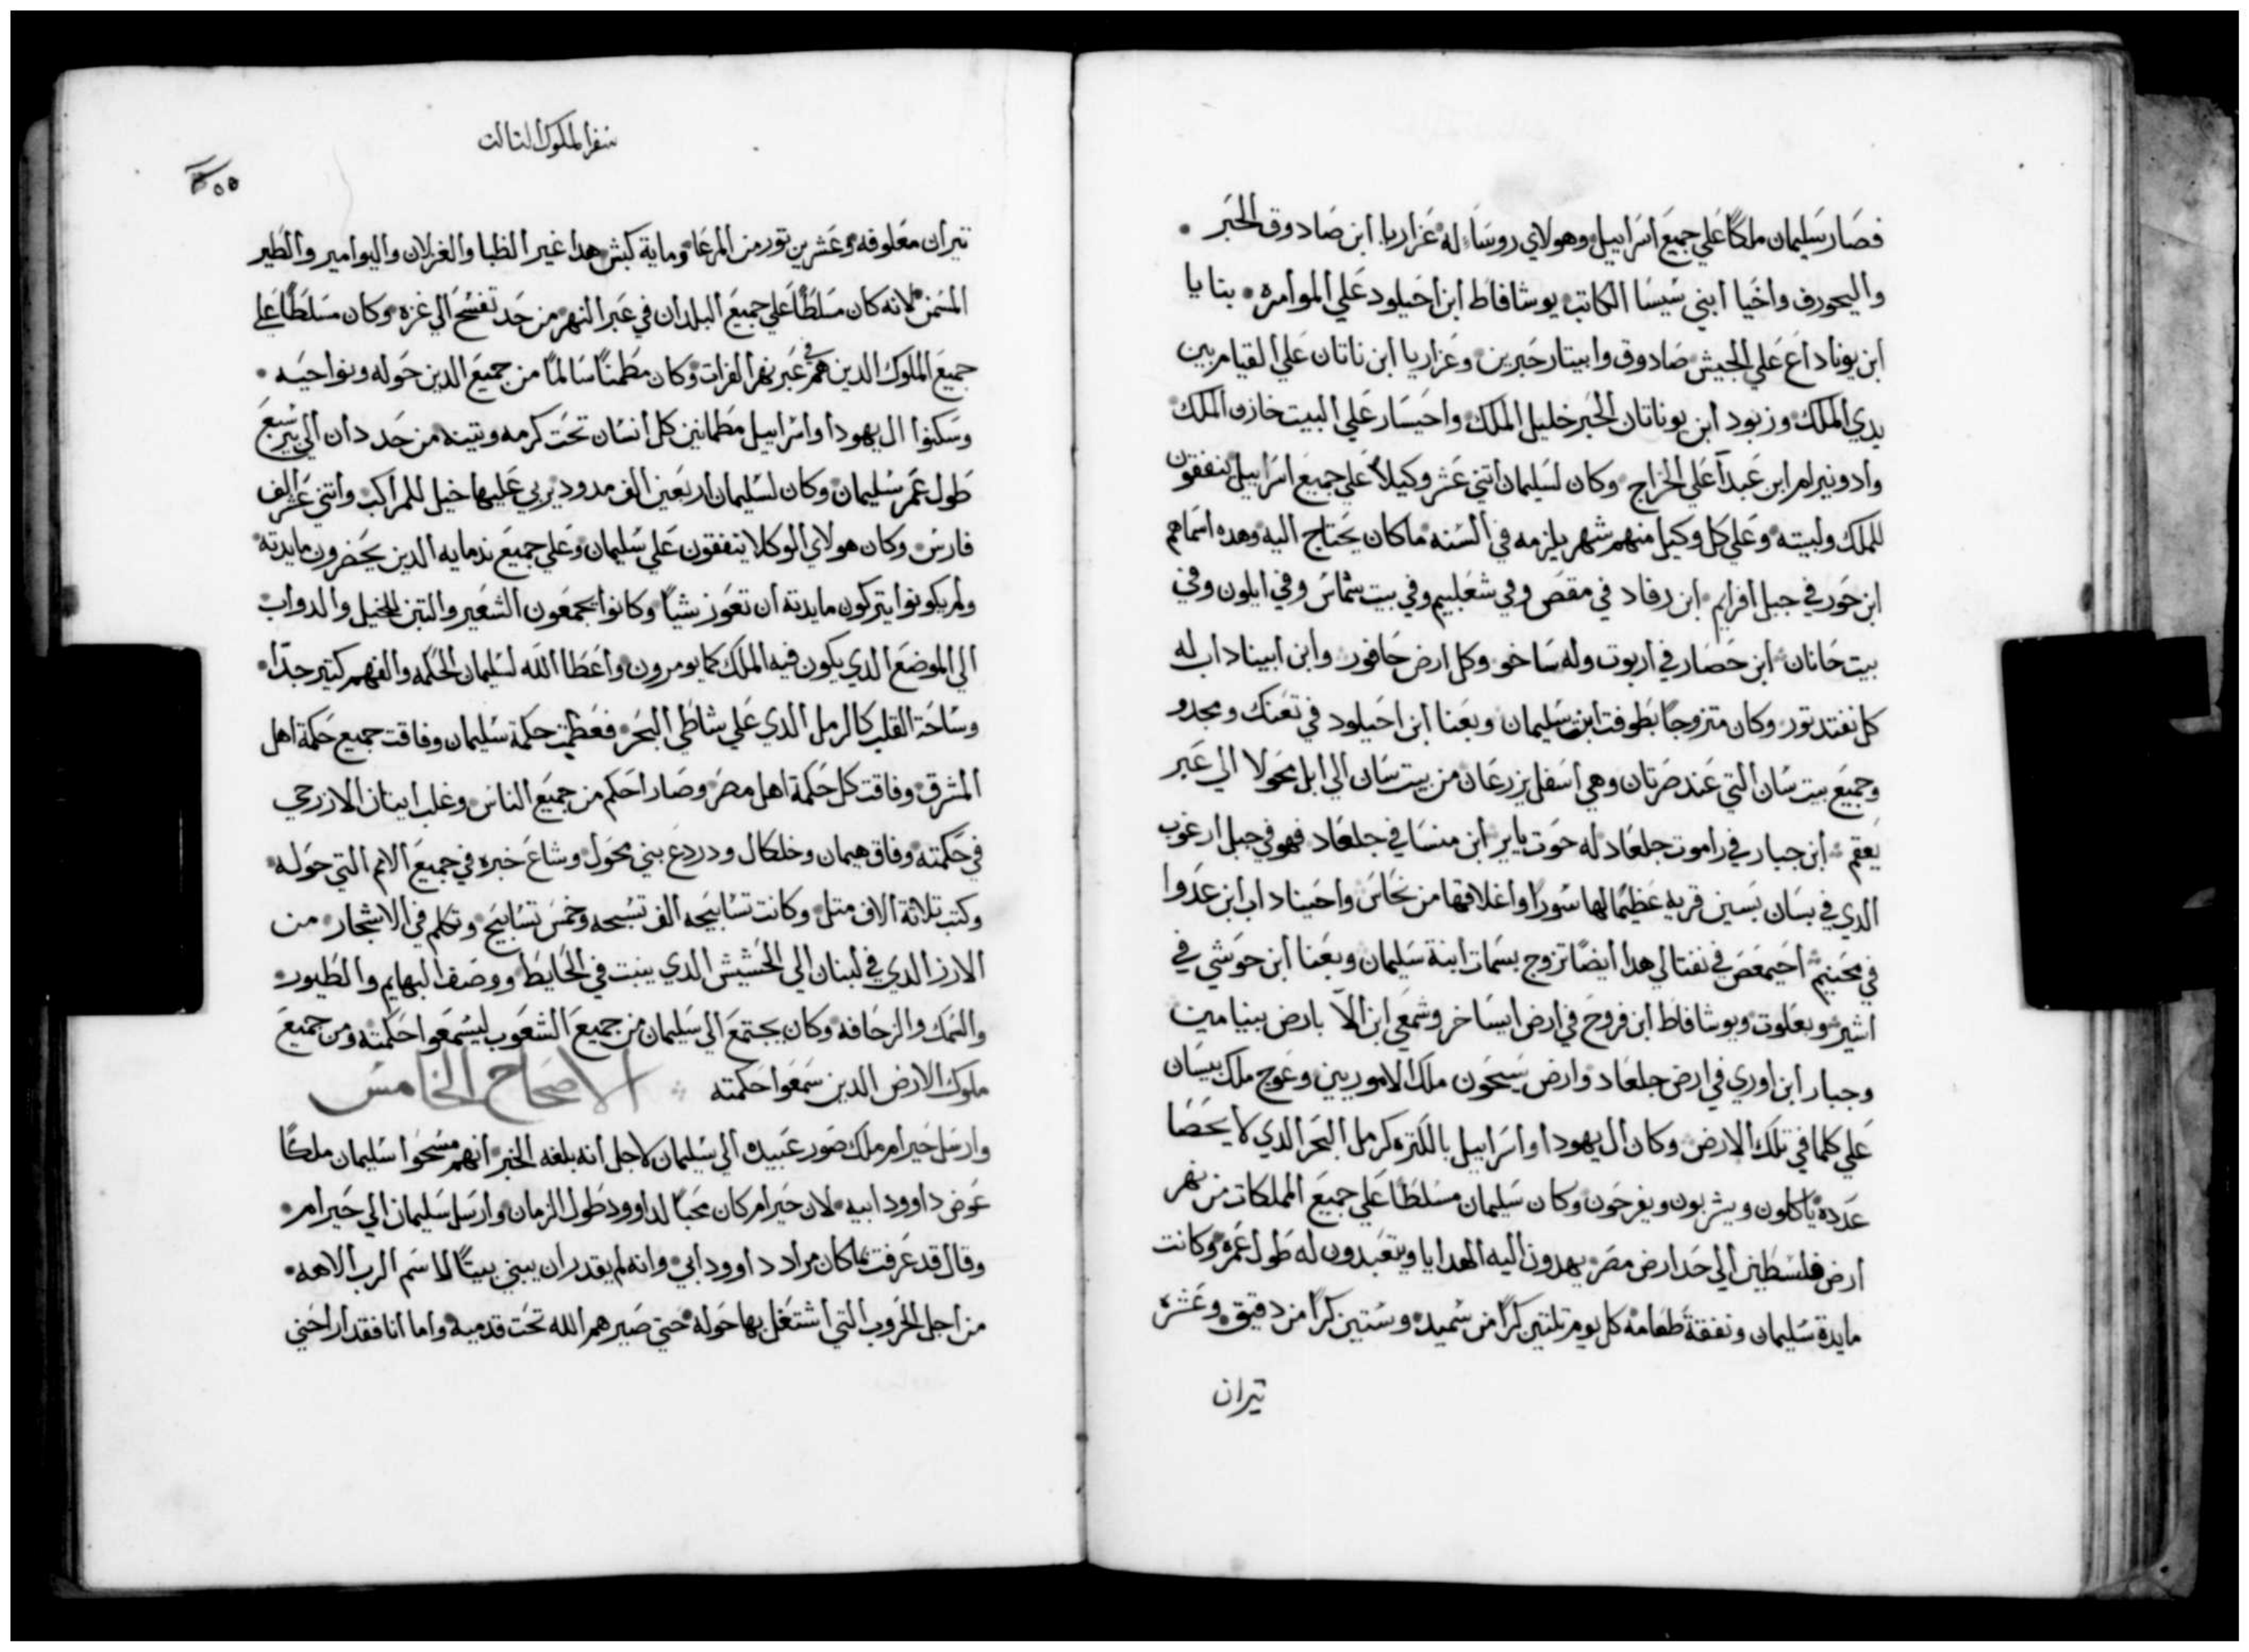 فصار سليمان ملكًا علي جميع اسراييل وهولاي روسآء له عزاريا ابن صادوق الحبر
واليحورف واخيا ابني سيسا الكاتب يوشافاط ابن اخيلود علي الموامره بنايا
ابن يوناداع علي الجيش صادوق وابيتار حبرين وعزاريا ابن ناتان علي القيام بين
يدي الملك وزبود ابن يوناتان الحبر خليل الملك واحيسار علي البيت خازن الملك
وادونيرام ابن عبدآ علي الخراج وكان لسليمان اتني عشر وكيلاً علي جميع اسراييل ينفقون
للملك ولبيته وعلي كل وكيل منهم شهر يلزمه في السنه ماكان يحتاج اليه وهده اسماهم
ابن حور في جبل افرايم ابن رفاد في مقص وفي شعلبيم وفي بيت شماس وفي ايلون وفي
بيت حانان ابن حصار في اربوت وله ساخو وكل ارض حافور وابن ابيناداب له
كل نفتد تور وكان متزوجًا بطوفت ابنت سليمان وبعنا ابن احيلود في تعنك ومجدو
وجميع بيت سان التي عند صرتان وهي اسفل يزرعان من بيت سان الي ابل محولا الي عبر
يعقم ابن جبار في راموت جلعاد له حوت ياير ابن منسا في جلعاد فهو في جبل ارغوب
الدي في بسان بستين قرية عظيمًا لها سورًا واغلاقها من نحاس واحيناداب ابن عدوا
في محنيم احيمعص في نفتالي هدا ايضًا تزوج بسمات ابنة سليمان وبعنا ابن حوشي في
اشير وبعلوت ويوشافاط ابن فروح في ارض ايساخر وشمعي ابن الآ بارض بنيامين
وجبار ابن اوري في ارض جلعاد وارض سيحون ملك الاموريين وعوج ملك بيسان
علي كلما في تلك الارض وكان ال يهودا واسراييل بالكتره كرمل البحر الدي لا يحصا
عدده ياكلون ويشربون ويفرحون وكان سليمان مسلطًا علي جميع المملكات من نهر
ارض فلسطين الي حد ارض مصر يهدون اليه الهدايا ويتعبدون له طول عمره وكانت
مايدة سليمان ونفقة طعامه كل يوم تلتين كرًا من سميد وستين كرًا من دقيق وعشره
تيران
سفر الملوك التالت
تيران معلوفه وعشرين تور من المرعا وماية كبش هدا غير الظبا والغزلان واليوامير والطير
المسمن لانه كان مسلطًا علي جميع البلدان في عبر النهر من حد تفسح الي غزه وكان مسلطًا علي
جميع الملوك الدين هم في عبر نهر الفرات وكان مطمنًا سالمًا من جميع الدين حوله ونواحيه
وسكنوا ال يهودا واسراييل مطمانين كل انسان تحت كرمه وتينه من حد دان الي بير سبع
طول عمر سليمان وكان لسليمان اربعين الف مدود يربي عليها خيل للمراكب واتني عشر الف
فارس وكان هولاي الوكلا ينفقون علي سليمان وعلي جميع ندمايه الدين يحضرون مايدته
ولم يكونوا يتركون مايدته ان تعوز شيًا وكانوا يجمعون الشعير والتبن للخيل والدواب
الي الموضع الدي يكون فيه الملك كما يومرون واعطا الله لسليمان الحكمه والفهم كتير جدًا
وساحة القلب كالرمل الدي علي شاطي البحر فعظمت حكمة سليمان وفاقت جميع حكمة اهل
المشرق وفاقت كل حكمة اهل مصر وصار احكم من جميع الناس وغلب ايتان الازرحي
في حكمته وفاق هيمان وخلكال ودردع بني محول وشاع خبره في جميع الامم التي حوله
وكتب تلاتة الاف متل وكانت تسابيحه الف تسبحه وخمس تسابيح وتكلم في الاشجار من
الارز الدي في لبنان الي الحشيش الدي ينبت في الحايط ووصف البهايم والطيور
والسمك والزحافه وكان يجتمع الي سليمان من جميع الشعوب ليسمعوا حكمته ومن جميع
ملوك الارض الدين سمعوا حكمته الاصحاح الخامس
وارسل حيرام ملك صور عبيده الي سليمان لاجل انه بلغه الخبر انهم مسحوا سليمان ملكًا
عوض داوود ابيه لان حيرام كان محبًا لداوود طول الزمان وارسل سليمان الي حيرام
وقال قد عرفت ماكان مراد داوود ابي وانه لم يقدر ان يبني بيتًا لاسم الرب الاهه
من اجل الحروب التي اشتغل بها حوله حتي صيرهم الله تحت قدميه واما انا فقد اراحني